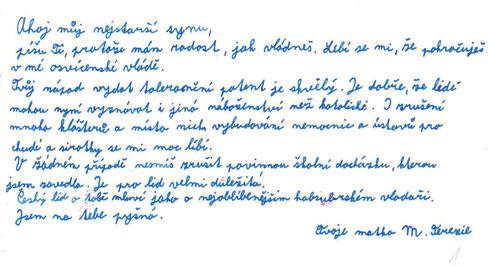 Ahoj můj nejstarší synu,
píšu Ti, protože mám radost, jak vládneš. Líbí se mi, že pokračuješ
v mé osvícenské vládě.
Tvůj nápad vydat toleranční patent je skvělý. Je dobře, že lidé
mohou nyní vyznávat i jiná náboženství než katolické. I zrušení
mnoha klášterů a místo nich vybudování nemocnic a ústavů pro
chudé a sirotky se mi moc líbí.
V žádném případě nesmíš zrušit povinnou školní docházku, kterou
jsem zavedla. Je pro lid velmi důležitá.
Český lid o tobě mluví jako o nejoblíbenějším habsburském vladaři.
Jsem na tebe pyšná.
Tvoje matka M. Terezie
1